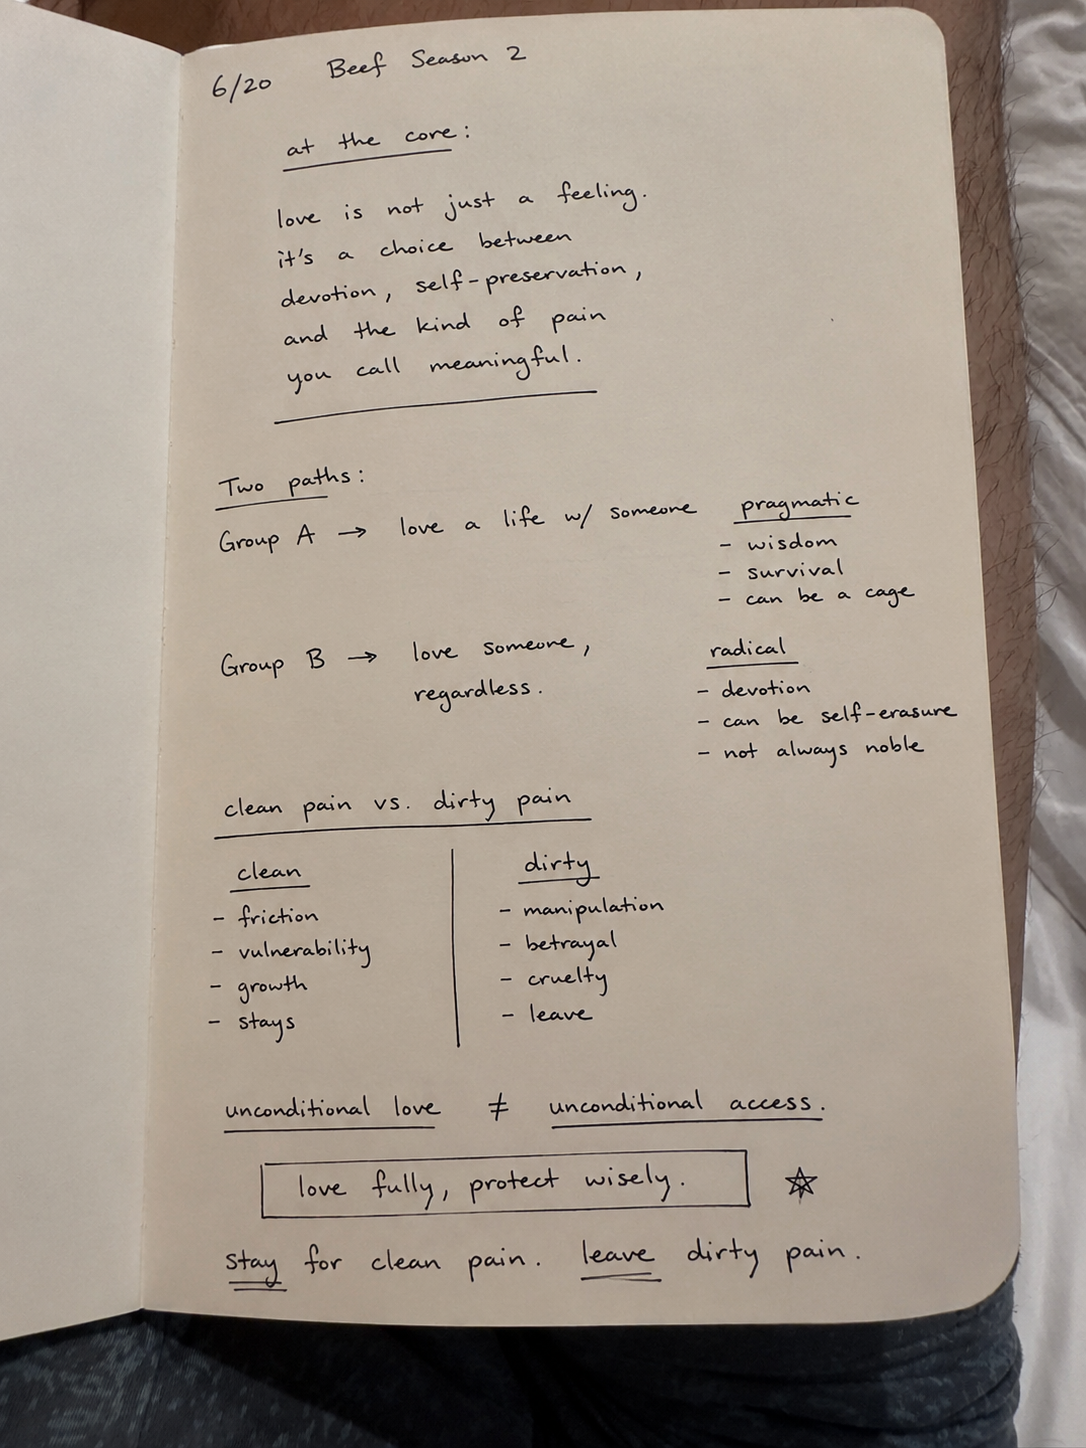 6/20 Beef Season 2
at the core:
love is not just a feeling.
it's a choice between
devotion, self-preservation,
and the kind of pain
you call meaningful.
Two paths:
Group A → love a life w/ someone
pragmatic
- wisdom
- survival
- can be a cage
Group B → love someone,
regardless.
radical
- devotion
- can be self-erasure
- not always noble
clean pain vs. dirty pain
clean
- friction
- vulnerability
- growth
- stays
dirty
- manipulation
- betrayal
- cruelty
- leave
unconditional love ≠ unconditional access.
love fully, protect wisely. ☆
stay for clean pain. leave dirty pain.